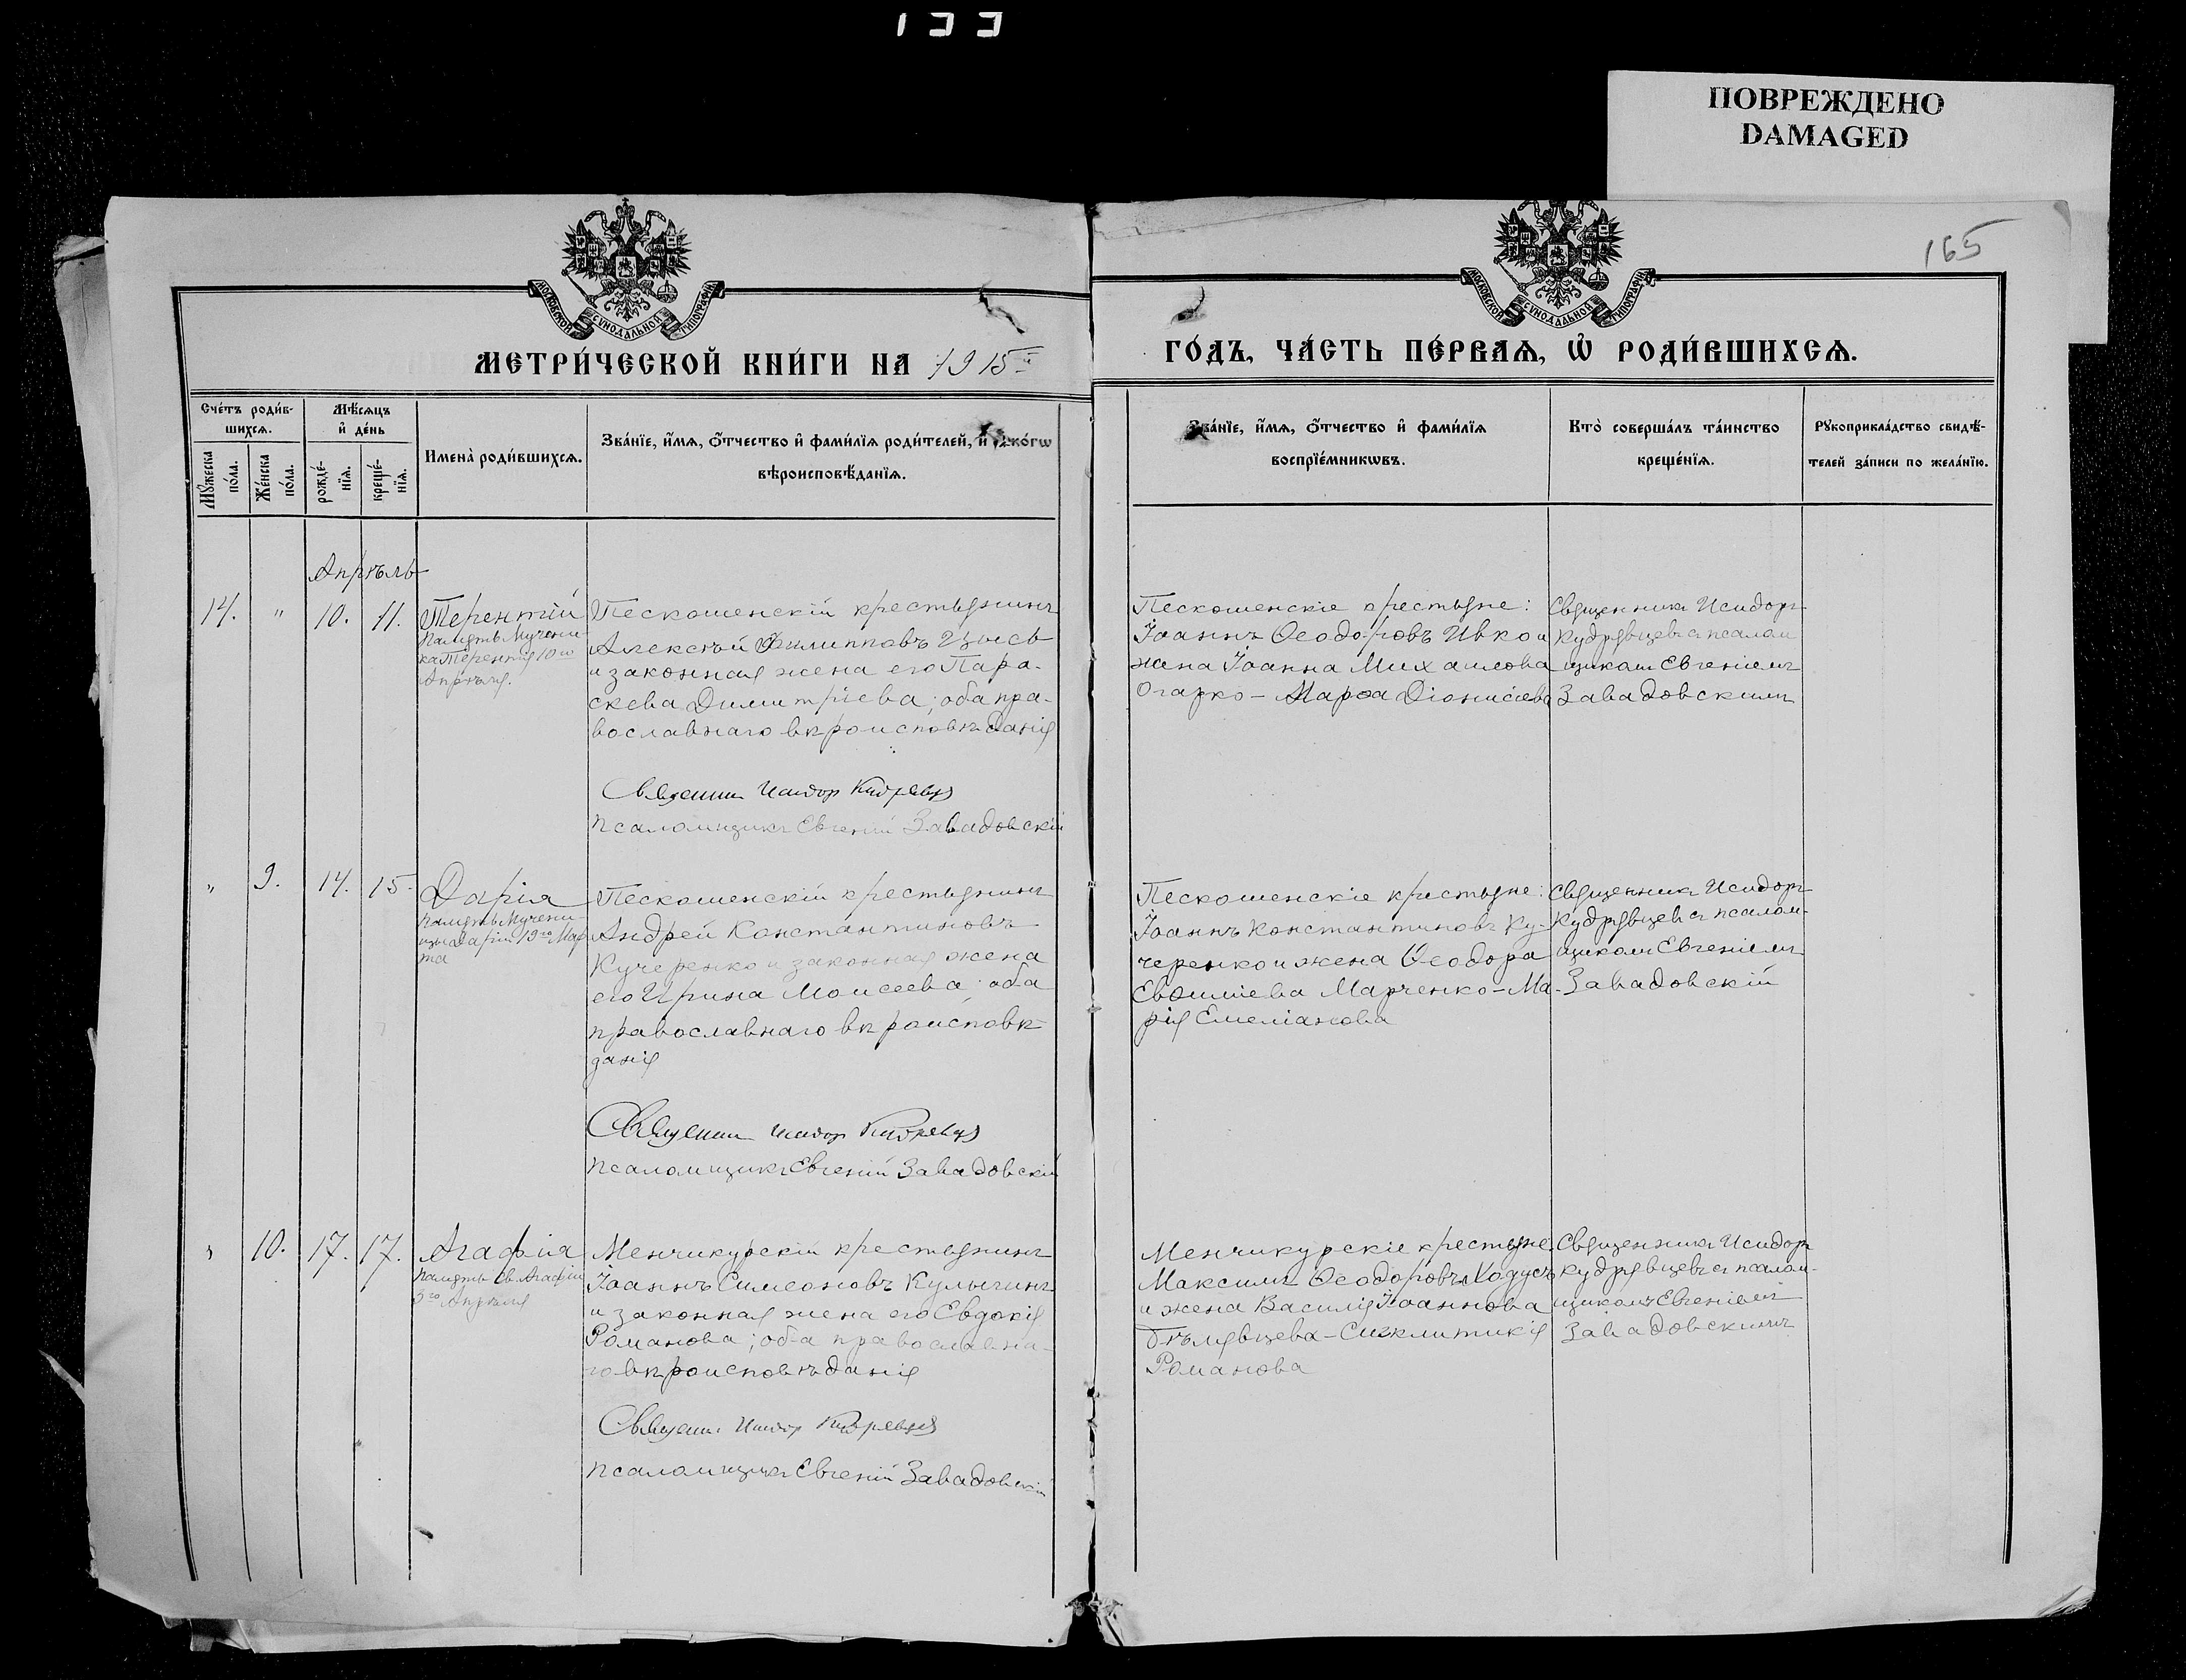 133
ПОВРЕЖДЕНО
DAMAGED
165
МОСКОВСКОЙ СѴНОДАЛЬНОЙ ТИПОГРАФІИ
МОСКОВСКОЙ СѴНОДАЛЬНОЙ ТИПОГРАФІИ
МЕТРИ́ЧЕСКОЙ КНИ́ГИ НА 1915й
ГО́ДЪ, ЧА́СТЬ ПЕ́РВАѦ, Ѽ РОДИ́ВШИХСѦ.
Сче́тъ роди́в-
шихсѧ.
Мѣ́сѧцъ
и҆ де́нь
Мꙋ́жеска
по́ла.
Же́нска
по́ла.
рожде́-
нїѧ.
креще́-
нїѧ.
Имена̀ роди́вшихсѧ.
Зва́нїе, и҆́мѧ, ѻ҆́тчество и҆ фами́лїѧ роди́телей, и҆ како́гѡ
вѣроисповѣ́данїѧ.
Зва́нїе, и҆́мѧ, ѻ҆́тчество и҆ фами́лїѧ
воспрїе́мникѡвъ.
Кто̀ соверша́лъ та́инство
креще́нїѧ.
Рꙋкоприкла́дство свидѣ́-
телей за́писи по жела́нїю.
Апрѣль
14. " 10. 11.
Терентій
Память Мучени-
ка Терентія 10го
Апрѣля.
Пескошенскій крестьянинъ
Алексѣй Филипповъ Цысь
и законная жена его Пара-
скева Димитріева; оба пра-
вославнаго вѣроисповѣданія
Священник Исидор Кудрявцев
Псаломщикъ Евгеній Завадовскій
Пескошенскіе крестьяне:
Іоаннъ Ѳеодоровъ Ивко и
жена Іоанна Михаилова
Огарко - Марѳа Діонисіева
Священникъ Исидоръ
Кудрявцевъ съ псалом
щикомъ Евгеніемъ
Завадовскимъ
" 9. 14. 15.
Дарія
Память Мучени-
цы Даріи 19го Мар
та
Пескошенскій крестьянинъ
Андрей Константиновъ
Кучеренко и законная жена
его Ирина Моисеева; оба
православнаго вѣроисповѣ-
данія
Священник Исидор Кудрявцев
Псаломщикъ Евгеній Завадовскій
Пескошенскіе крестьяне:
Іоаннъ Константиновъ Ку-
черенко и жена Ѳеодора
Евѳиміева Марченко - Ма-
рія Емеліанова
Священникъ Исидоръ
Кудрявцевъ съ псалом-
щикомъ Евгеніемъ
Завадовскій
" 10. 17. 17.
Агафія
Память Св. Агафіи
3го Апрѣля
Менчикурскій крестьянинъ
Іоаннъ Симеоновъ Кулыгинъ
и законная жена его Евдокія
Романова; оба православна-
го вѣроисповѣданія
Священник Исидор Кудрявцев
Псаломщикъ Евгеній Завадовскій
Менчикурскіе крестьяне:
Максимъ Ѳеодоровъ Ходусъ
и жена Василія Іоаннова
Бѣлявцева - Сигклитикія
Романова
Священникъ Исидоръ
Кудрявцевъ съ псалом-
щикомъ Евгеніемъ
Завадовскимъ